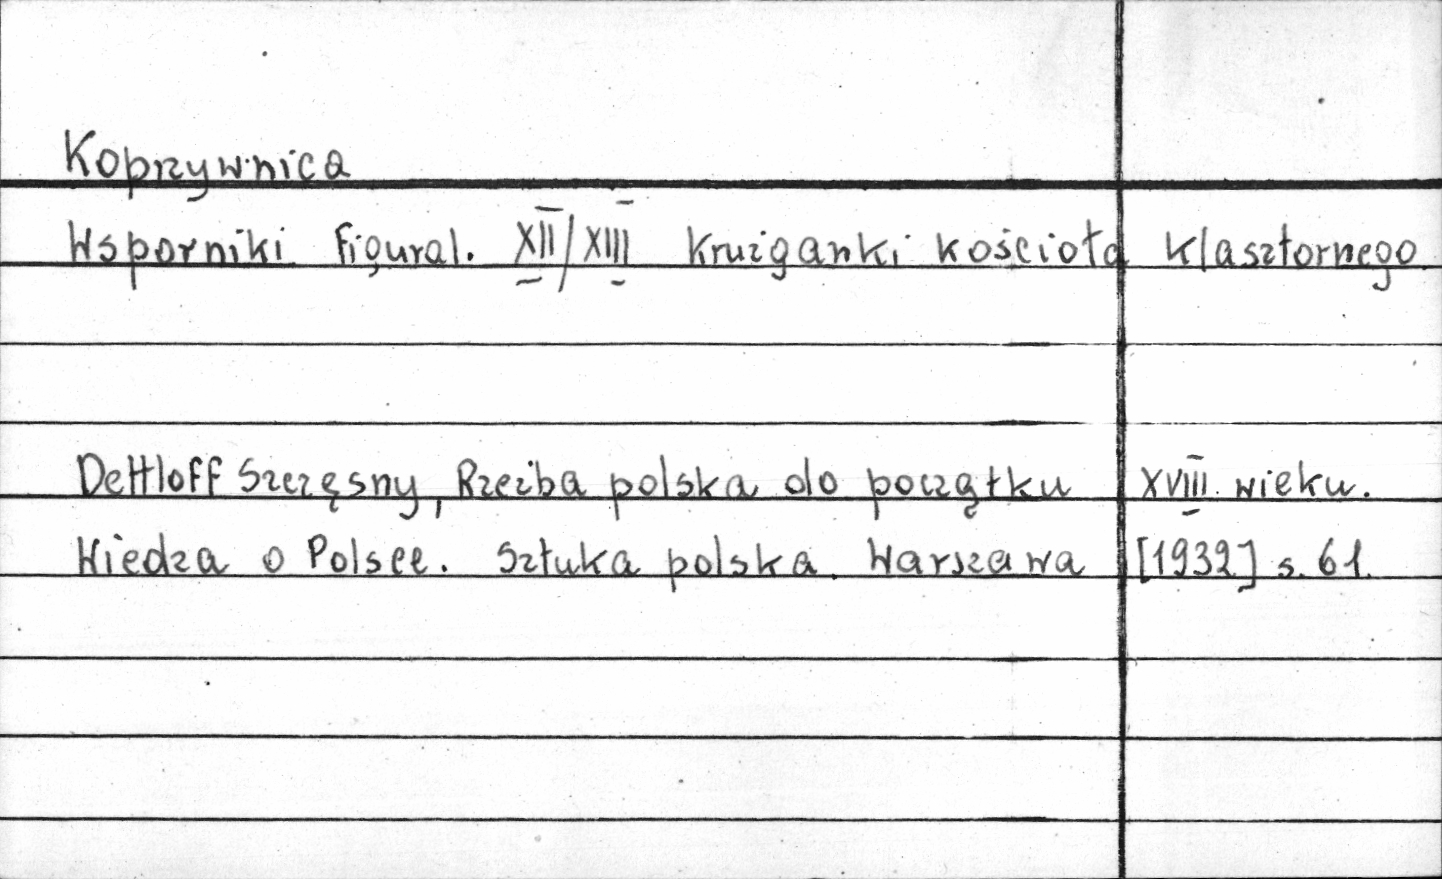 Koprzywnica
Wsporniki figural. XII/XIII Krużganki kościoła klasztornego
Dettloff Szczęsny, Rzeźba polska do początku XVIII wieku.
Wiedza o Polsce. Sztuka polska. Warszawa [1932] s. 61.